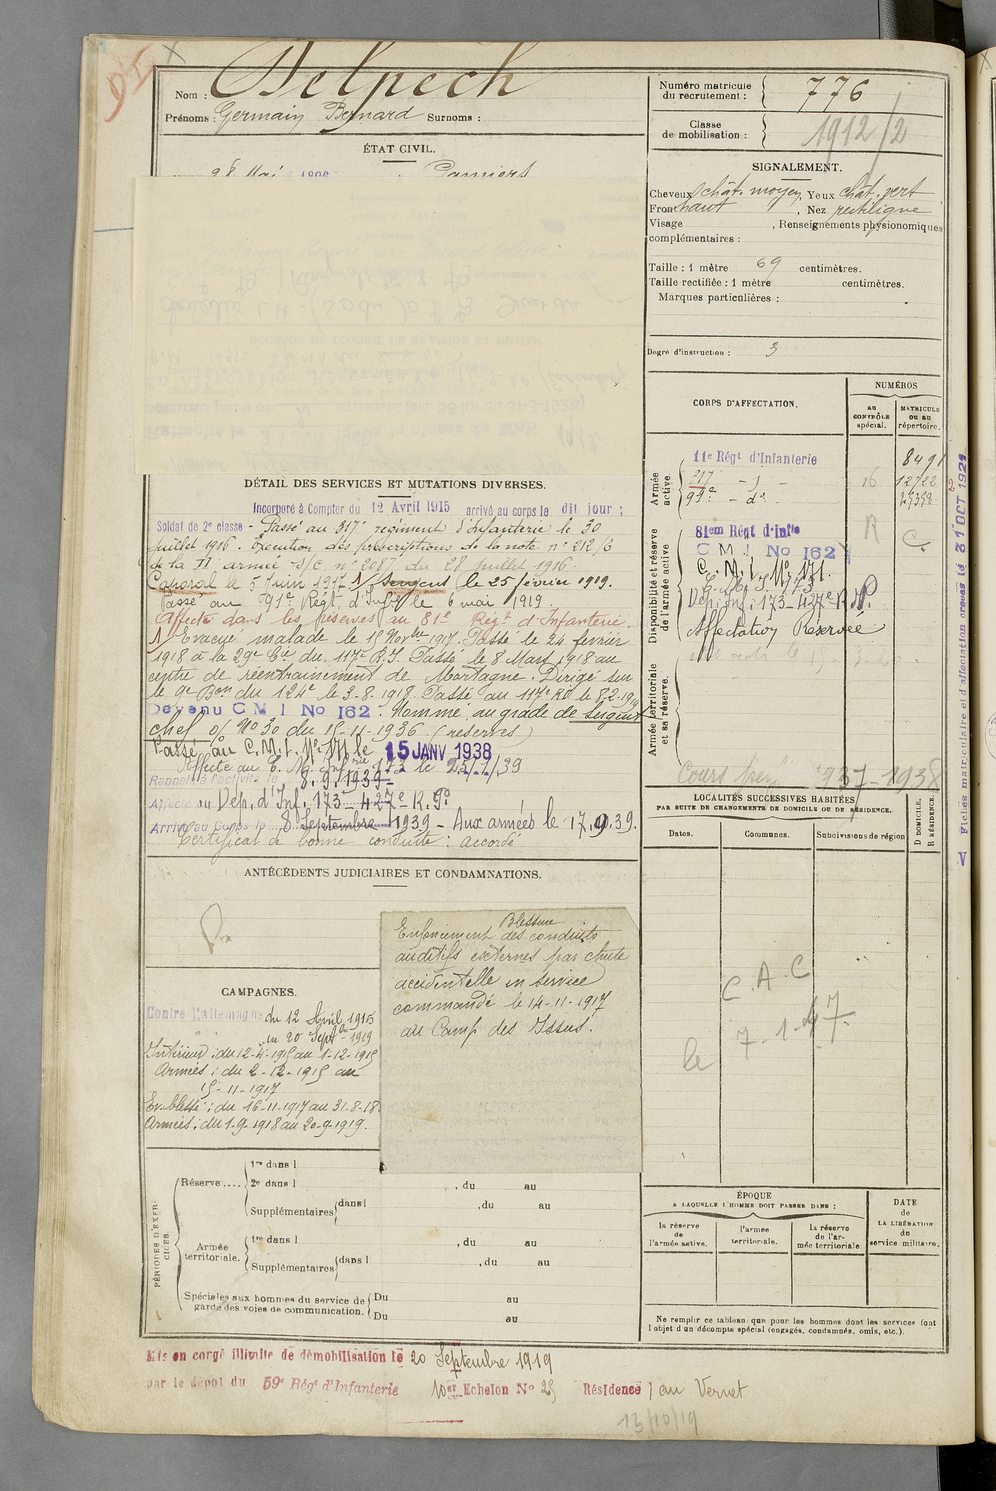 Nom : Delpech
Prénoms : Germain Bernard Surnoms :
ÉTAT CIVIL.
28 Mai Pamiers
DÉTAIL DES SERVICES ET MUTATIONS DIVERSES.
Incorporé à Compter du 12 Avril 1915 arrivé au corps le dit jour ;
Soldat de 2e classe - Passé au 317e régiment d'Infanterie le 30
juillet 1916. Exécution des prescriptions de la note n° 212/2
de la II armée du 28 juillet 1916.
Caporal le 5 Juin 1917 Sergent le 25 février 1919.
Passé au 91e Régt. d'Infie le 6 mai 1919.
Affecté dans les réserves au 81e Régt d'Infanterie.
Evacué malade le 15 Novbre 1917. Passé le 24 février
1918 à la 29e Cie du 117e R.I. Passé le 8 Mars 1918 au
centre de réentrainement de Mortagne. Dirigé sur
le 9e Bon du 124e le 3.8.1918. Passé au 117e RI le 8.2.19
Devenu C M I No 162. Nommé au grade de Sergent
chef o/ No 30 du 15-11-1936 (réserves)
Passé au C.M.I. No 171 le 15 JANV 1938
Affecté au C. M. Infrie 173 le
Rappelé à l'activité le 8.9.1939
Affecté au Dép. d'Inf. 173 - 427e R. Po
Arrivé au corps le 8 Septembre 1939 - Aux armées le 17.9.39.
Certificat de bonne conduite : accordé
ANTÉCÉDENTS JUDICIAIRES ET CONDAMNATIONS.
Blessure
Enfoncement des conduits
auditifs externes par chute
accidentelle en service
commandé le 14-11-1917
au Camp des Issus.
CAMPAGNES.
Contre l'Allemagne du 12 Avril 1915
au 20 Septbre 1919
Intérieur : du 12-4-1915 au 1-12-1915
Armées : du 2-12-1915 au
15-11-1917
En blessé : du 16-11-1917 au 31-8-18
Armées : du 1-9-1918 au 20-9-1919.
PÉRIODES D'EXERCICES.
Réserve ....
1re dans l
2e dans l , du au
Supplémentaires dans l , du au
Armée territoriale.
1re dans l , du au
Supplémentaires dans l , du au
Spéciales aux hommes du service de
garde des voies de communication.
Du au
Du au
Numéro matricule
du recrutement : 776
Classe
de mobilisation : 1912/2
SIGNALEMENT.
Cheveux chât. moyen, Yeux chât. vert
Front haut , Nez rectiligne
Visage , Renseignements physionomiques
complémentaires :
Taille : 1 mètre 69 centimètres.
Taille rectifiée : 1 mètre centimètres.
Marques particulières :
Degré d'instruction : 3
CORPS D'AFFECTATION.
NUMÉROS
au CONTRÔLE spécial.
MATRICULE OU AU répertoire.
Armée active.
11e Régt d'Infanterie 8491
317e - d° - 16 12722
91e - d° -
Disponibilité et réserve de l'armée active
81em Régt d'Infie R
C M I No 162 C.
C. M. I. No 171.
Dép. Inf. 173 - 427e R.P.
Affectation Réservée
Armée territoriale et sa réserve.
1937-1938
LOCALITÉS SUCCESSIVES HABITÉES
PAR SUITE DE CHANGEMENTS DE DOMICILE OU DE RÉSIDENCE.
Dates.
Communes.
Subdivisions de région
D DOMICILE.
R RÉSIDENCE.
C.A.C
le 7-1-47.
ÉPOQUE
A LAQUELLE L'HOMME DOIT PASSER DANS :
la réserve de l'armée active.
l'armée territoriale.
la réserve de l'armée territoriale.
DATE de LA LIBÉRATION du service militaire.
Ne remplir ce tableau que pour les hommes dont les services font
l'objet d'un décompte spécial (engagés, condamnés, omis, etc.).
Fiches matriculaire et d'affectation créées le 31 OCT 1921
V
Mis en congé illimité de démobilisation le 20 Septembre 1919
par le dépôt du 59e Régt d'Infanterie 10er Echelon No 25 Résidence : au Vernet
13/10/19